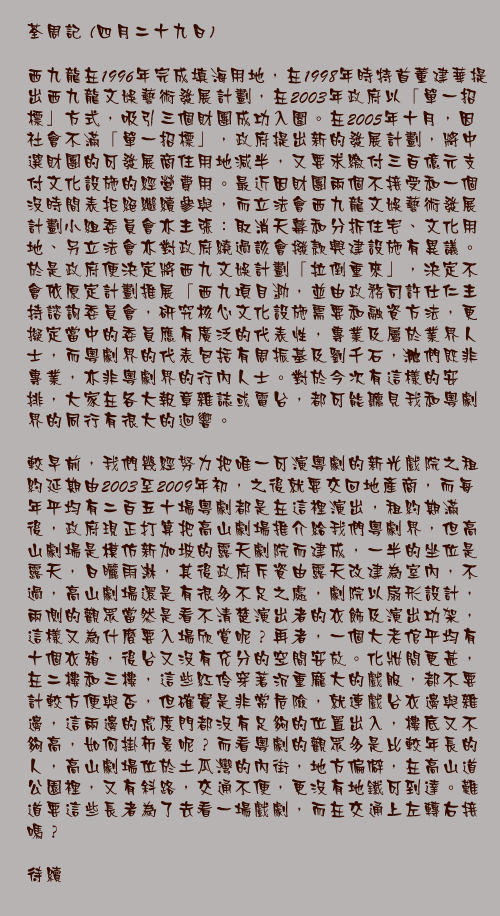 荃周記 (四月二十九日)

西九龍在1996年完成填海用地，在1998年時特首董建華提
出西九龍文娛藝術發展計劃，在2003年政府以「單一招
標」方式，吸引三個財團成功入圍。在2005年十月，因
社會不滿「單一招標」，政府提出新的發展計劃，將中
選財團的可發展商住用地減半，又要求繳付三百億元支
付文化設施的經營費用。最近因財團兩個不接受和一個
沒時間表拒絕繼續參與，而立法會西九龍文娛藝術發展
計劃小組委員會亦主張：取消天幕和分拆住宅、文化用
地、另立法會亦對政府繞過該會撥款興建設施有異議。
於是政府便決定將西九文娛計劃「拉倒重來」，決定不
會依原定計劃推展「西九項目』，並由政務司許仕仁主
持諮詢委員會，研究核心文化設施需要和融資方法，更
擬定當中的委員應有廣泛的代表性，專業及屬於業界人
士，而粵劇界的代表包括有周振基及劉千石，他們既非
專業，亦非粵劇界的行內人士。對於今次有這樣的安
排，大家在各大報章雜誌或電台，都可能聽見我和粵劇
界的同行有很大的迴響。

較早前，我們幾經努力把唯一可演粵劇的新光戲院之租
約延期由2003至2009年初，之後就要交回地產商，而每
年平均有二百五十場粵劇都是在這裡演出，租約期滿
後，政府現正打算把高山劇場推介給我們粵劇界，但高
山劇場是模仿新加坡的露天劇院而建成，一半的坐位是
露天，日曬雨淋，其後政府斥資由露天改建為室內，不
過，高山劇場還是有很多不足之處，劇院以扇形設計，
兩側的觀眾當然是看不清楚演出者的衣飾及演出功架，
這樣又為什麼要入場欣賞呢？再者，一個大老倌平均有
十個衣箱，後台又沒有充分的空間安放。化粧間更甚，
在二樓和三樓，這些紅伶穿著沉重龐大的戲服，都不要
計較方便與否，但確實是非常危險，就連戲台衣邊與雜
邊，這兩邊的虎度門都沒有足夠的位置出入，樓底又不
夠高，如何掛布景呢？而看粵劇的觀眾多是比較年長的
人，高山劇場位於土瓜灣的內街，地方偏僻，在高山道
公園裡，又有斜路，交通不便，更沒有地鐵可到達。難
道要這些長者為了去看一場戲劇，而在交通上左轉右接
嗎？

待續